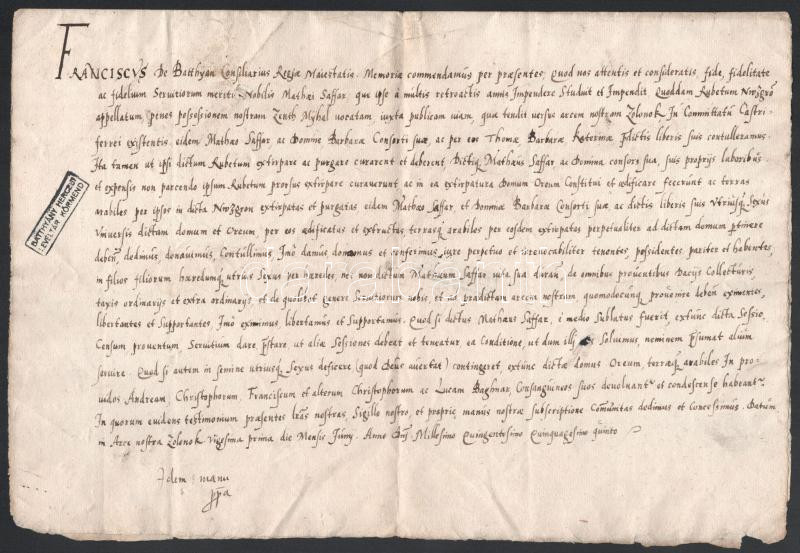 FRANCISCUS De Batthyan Consiliarius Regiæ Maiestatis. Memoriæ commendamus per præsentes, Quod nos attentis et consideratis, fide, fidelitate
ac fidelium Servitiorum meritis Nobilis Mathæi Saffar, que ipse à multis retroactis annis Impendere Studuit et Impendit Quoddam Rubetum
appellatum, penes possessionem nostram Zenth Myhal vocatam, iuxta publicam viam, quæ tendit versus arcem nostram Zolonok In Comittatu Castri-
ferrei existentis, eidem Mathæo Saffar ac Domine Barbaræ Consorti suæ, ac per eos Thomæ Barbaræ Katerinæ liberis suis contulleramus.
Ita tamen ut ipsi dictum Rubetum extirpare ac purgare curarent et deberent, Mathæus Saffar ac Domina consors sua, suis proprijs laboribus
et expensis non parcendo ipsum Rubetum prorsus extirpare curaverunt ac in ea extirpatura Domum Oreum Constitui et ædificare fecerunt ac terras
arabiles per ipsos in dicta extirpatas et purgatas eidem Mathæo Saffar, et Domine Barbaræ Consorti suæ, ac dictis liberis suis Utriusq Sexus
Universis dictam domum et Oreum, per eos ædificatas et extructas terrasq arabiles per eosdem extirpatas perpetualiter ad dictam domum
deben, dedimus, donavimus, Contullimus, Imo damus donamus et conferimus, iure perpetuo et irrevocabiliter tenentes, possidentes pariter et habentes,
in filios filiorum hæredumq utrius Sexus per hæredes, nec non dictum Mathæum Saffar vita sua duran, de omnibus proventibus Dacijs Collecturis
taxis ordinarijs et extra ordinarijs, et de quolibet genere Servitiorum nobis, et ad prædictam arcem nostram, quomodocunq provenire deben eximentes,
libertantes et Supportantes, Imo eximimus libertamus et Supportamus. Quod si dictus Mathæus Saffar, i medio Sublatus fuerit, extunc dicta Sessio,
Censum proventum Servitium dare ut aliæ Sessiones debeat et teneatur ea Conditione, ut dum Solvemus, neminem alium
servire. Quod si autem in semine utriusq Sexus deficere (quod Deus avertat) contingeret, extunc dictæ domus Oreum, terræq arabiles In pro-
vidos Andream, Christophorum, Franciscum et alterum Christophorum ac Lucam Baghnar, Consangvineos suos devoluant et condescense habeant.
In quorum evidens testimonium præsentes nostras, Sigillo nostro, et propriæ manus nostræ subscriptione dedimus et concessimus. Datum
in Arce nostra Zolonok Vigesima prima die Mensis Juny. Anno Millesimo Quingentesimo Quinquagesimo quinto
Idem manu
ppa
BATTHYÁNY HERCZEGI
LEVÉLTÁR KÖRMEND